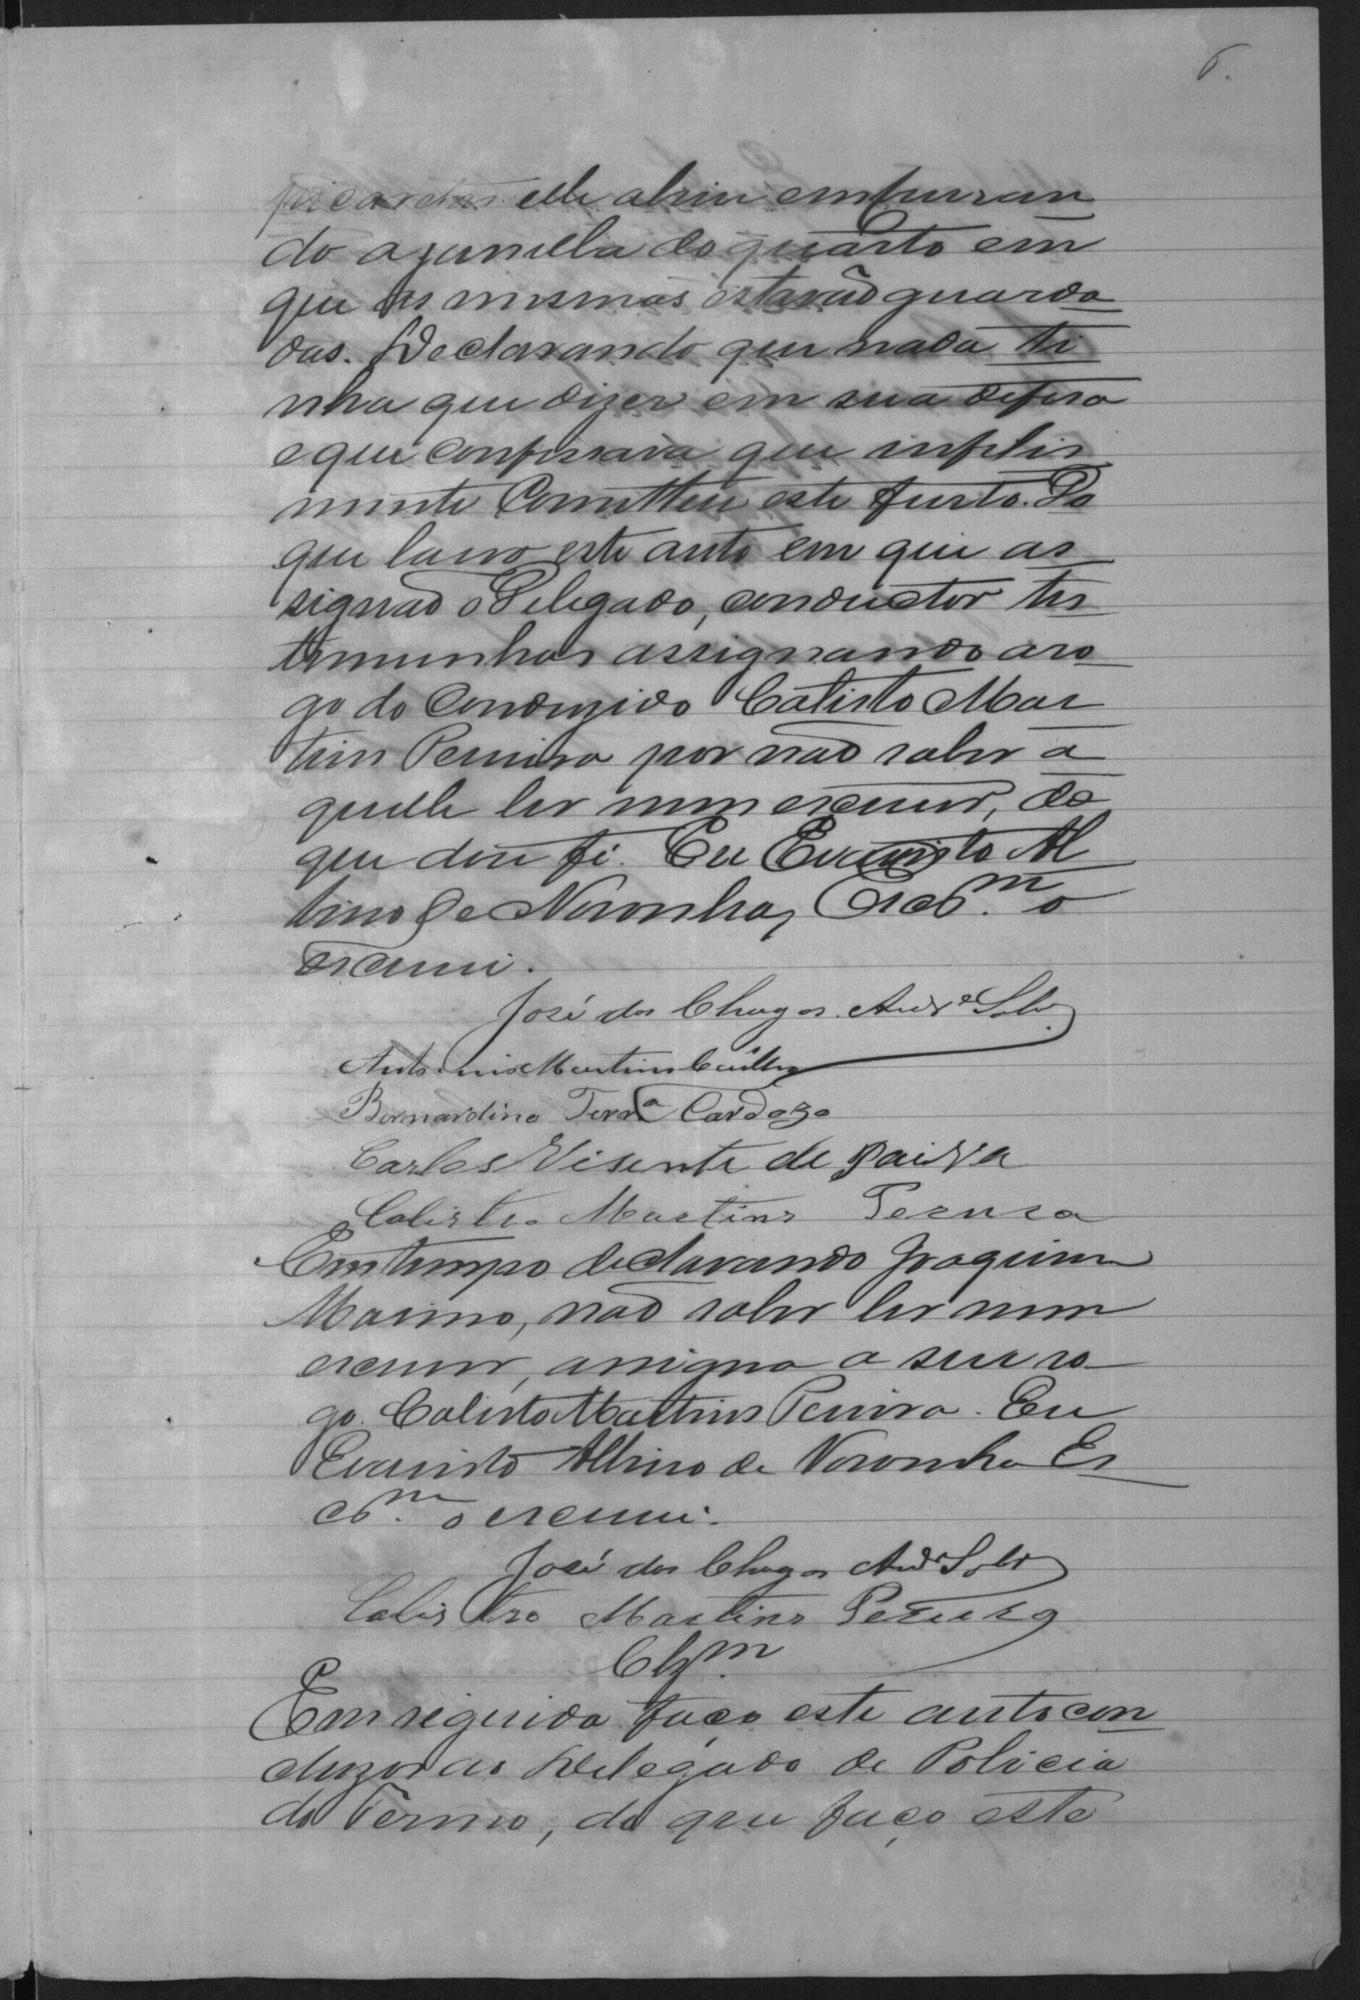 6.
elle abrio empurran
do a janella do quarto em
que as mesmas estavão guarda
das. Declarando que nada ti
nha que dizer em sua defesa
e que confessava que infelis
mente Cometteu este furto. Do
que lavro este auto em que as
signão o Delegado, conductor tes
temunhas assignando a ro
go do Conduzido Calisto Mar
tins Pereira por não saber a
quelle ler nem escrever, do
que dou fé. Eu Evaristo Al
bino de Noronha, Escr.m o
escrevi.
José das Chagas Andre Sobr
Antonio Martins Coelho
Bernardino Terra Cardozo
Carlos Visente de Paiva
Calistro Martins Pereira
Em tempo declarando Joaquim
Marino, não saber ler nem
escrever, assigna a seu ro
go Calisto Martins Pereira. Eu
Evaristo Albino de Noronha Es
cr.m o escrevi.
José das Chagas Andr Sobr
Calistro Martins Pereira
Clz.m
Em seguida faço este auto con
cluzo ao Delegado de Policia
do Termo, do que faço este